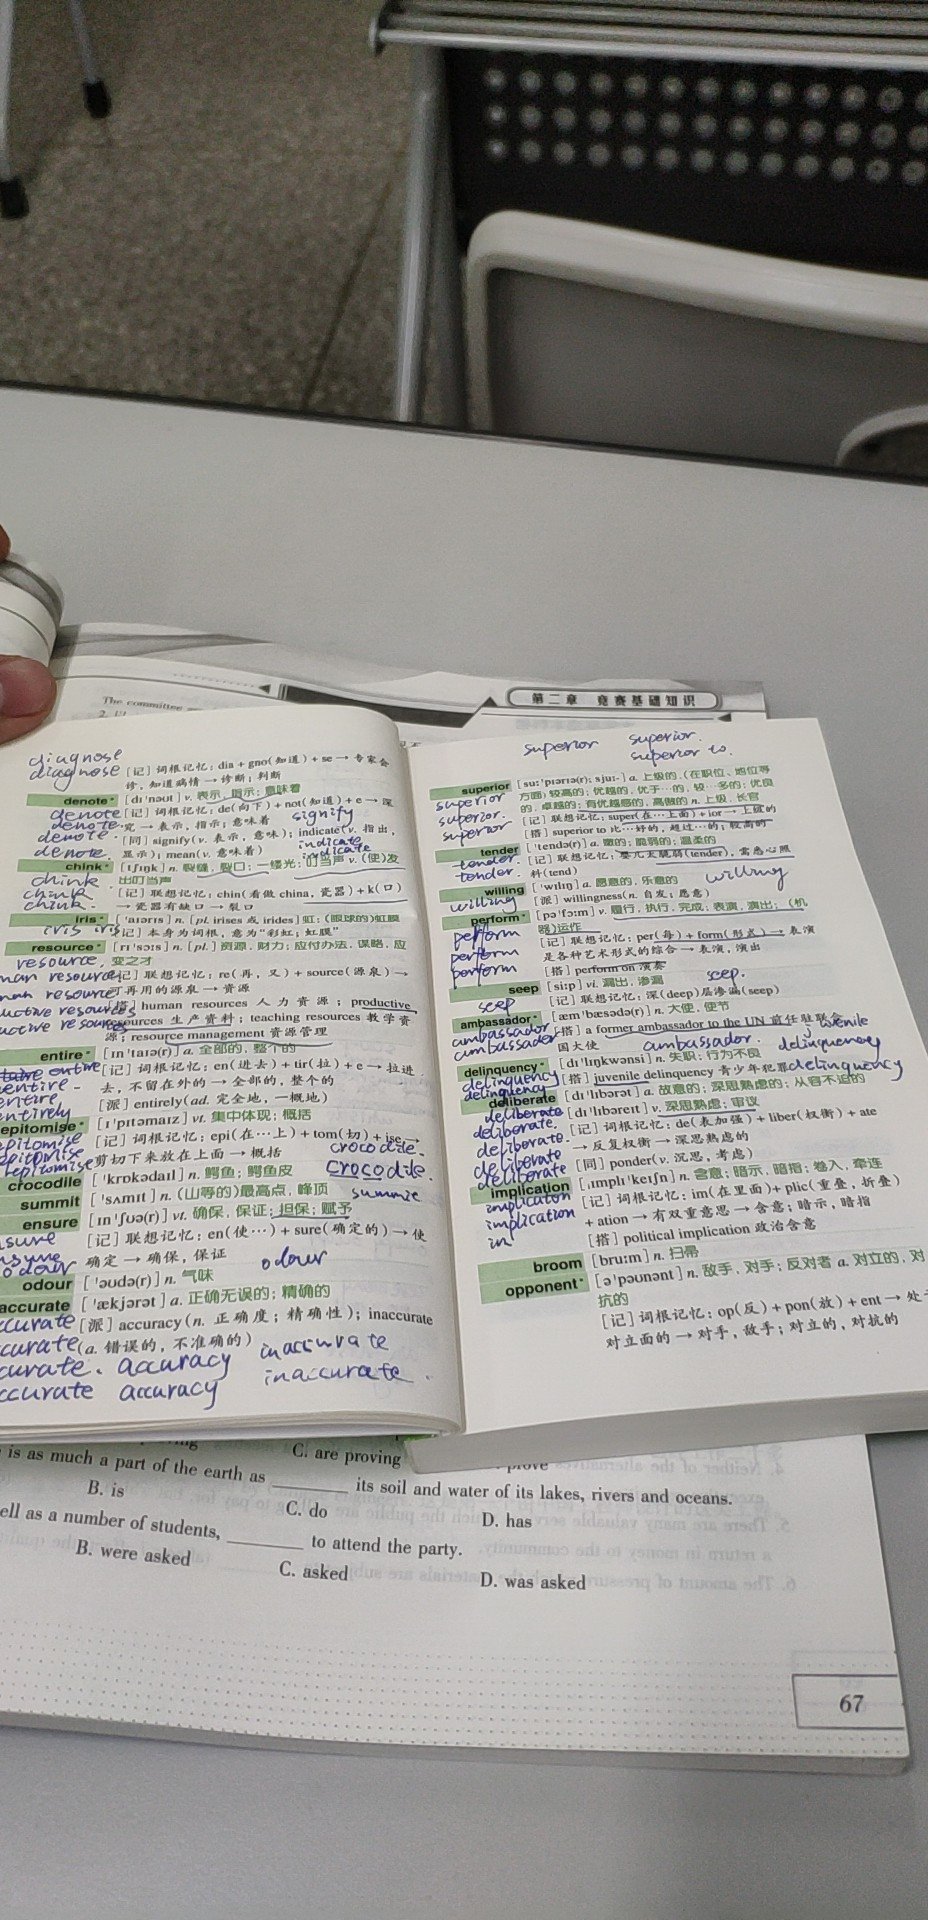 第二章 竞赛基础知识
The committee
diagnose
diagnose [记] 词根记忆: dia + gno(知道) + se → 专家会
诊, 知道病情 → 诊断; 判断
denote* [dɪ'nəʊt] v. 表示, 指示; 意味着
denote [记] 词根记忆: de(向下) + not(知道) + e → 深 signify
denote 究 → 表示, 指示; 意味着
denote [同] signify(v. 表示, 意味); indicate(v. 指出, indicate
denote 显示); mean(v. 意味着) indicate
chink* [tʃɪŋk] n. 裂缝, 裂口; 一缕光; 叮当声 v. (使)发
chink 出叮当声
chink [记] 联想记忆: chin(看做 china, 瓷器) + k(口)
chink → 瓷器有缺口 → 裂口
iris* ['aɪərɪs] n. [pl. irises 或 irides] 虹; (眼球的)虹膜
iris iris [记] 本身为词根, 意为“彩虹; 虹膜”
resource* [rɪ'sɔːs] n. [pl.] 资源, 财力; 应付办法, 谋略, 应
resource 变之才
man resource [记] 联想记忆: re(再, 又) + source(源泉) →
man resource 可再用的源泉 → 资源
uctive resources [搭] human resources 人力资源; productive
uctive resources resources 生产资料; teaching resources 教学资
源; resource management 资源管理
entire* [ɪn'taɪə(r)] a. 全部的, 整个的
entire [记] 词根记忆: en(进去) + tir(拉) + e → 拉进
entire 去, 不留在外的 → 全部的, 整个的
entire
entirely [派] entirely(ad. 完全地, 一概地)
epitomise* [ɪ'pɪtəmaɪz] vt. 集中体现; 概括
epitomise [记] 词根记忆: epi(在…上) + tom(切) + ise → crocodile
epitomise
epitomise 剪切下来放在上面 → 概括 crocodile
crocodile ['krɒkədaɪl] n. 鳄鱼; 鳄鱼皮
summit ['sʌmɪt] n. (山等的)最高点, 峰顶 summit
ensure [ɪn'ʃʊə(r)] vt. 确保, 保证; 担保; 赋予
nsure [记] 联想记忆: en(使…) + sure(确定的) → 使
nsure 确定 → 确保, 保证
odour odour
odour ['əʊdə(r)] n. 气味
accurate ['ækjərət] a. 正确无误的; 精确的
ccurate [派] accuracy(n. 正确度; 精确性); inaccurate
curate (a. 错误的, 不准确的) inaccurate
curate accuracy inaccurate
ccurate accuracy
superior superior
superior to
superior [suː'pɪəriə(r); sjuː-] a. 上级的, (在职位、地位等
superior 方面)较高的; 优越的, 优于…的, 较…多的; 优良
superior 的, 卓越的; 有优越感的, 高傲的 n. 上级, 长官
superior [记] 联想记忆: super(在…上面) + ior → 上级的
[搭] superior to 比…好的, 超过…的; 较高的
tender ['tendə(r)] a. 嫩的; 脆弱的; 温柔的
tender [记] 联想记忆: 婴儿太脆弱(tender), 需悉心照
tender 料(tend)
willing ['wɪlɪŋ] a. 愿意的, 乐意的 willing
willing [派] willingness(n. 自发; 愿意)
perform* [pə'fɔːm] v. 履行, 执行, 完成; 表演, 演出; (机
perform 器)运作
perform [记] 联想记忆: per(每) + form(形式) → 表演
perform 是各种艺术形式的综合 → 表演, 演出
[搭] perform on 演奏
seep [siːp] vi. 漏出, 渗漏 seep
seep [记] 联想记忆: 深(deep)层渗漏(seep)
ambassador* [æm'bæsədə(r)] n. 大使, 使节
ambassador [搭] a former ambassador to the UN 前任驻联合
ambassador 国大使 ambassador juvenile
delinquency
delinquency* [dɪ'lɪŋkwənsi] n. 失职; 行为不良
delinquency [搭] juvenile delinquency 青少年犯罪 delinquency
delinquency
deliberate [dɪ'lɪbərət] a. 故意的; 深思熟虑的; 从容不迫的
deliberate [dɪ'lɪbəreɪt] v. 深思熟虑; 审议
deliberate [记] 词根记忆: de(表加强) + liber(权衡) + ate
deliberate → 反复权衡 → 深思熟虑的
deliberate
deliberate [同] ponder(v. 沉思, 考虑)
implication [ˌɪmplɪ'keɪʃn] n. 含意; 暗示, 暗指; 卷入, 牵连
implication [记] 词根记忆: im(在里面) + plic(重叠, 折叠)
implication + ation → 有双重意思 → 含意; 暗示, 暗指
in [搭] political implication 政治含意
broom [bruːm] n. 扫帚
opponent* [ə'pəʊnənt] n. 敌手, 对手; 反对者 a. 对立的, 对
抗的
[记] 词根记忆: op(反) + pon(放) + ent → 处
对立面的 → 对手, 敌手; 对立的, 对抗的
C. are proving
prove
is as much a part of the earth as ________ its soil and water of its lakes, rivers and oceans.
B. is C. do D. has
ell as a number of students, ________ to attend the party.
B. were asked C. asked D. was asked
67